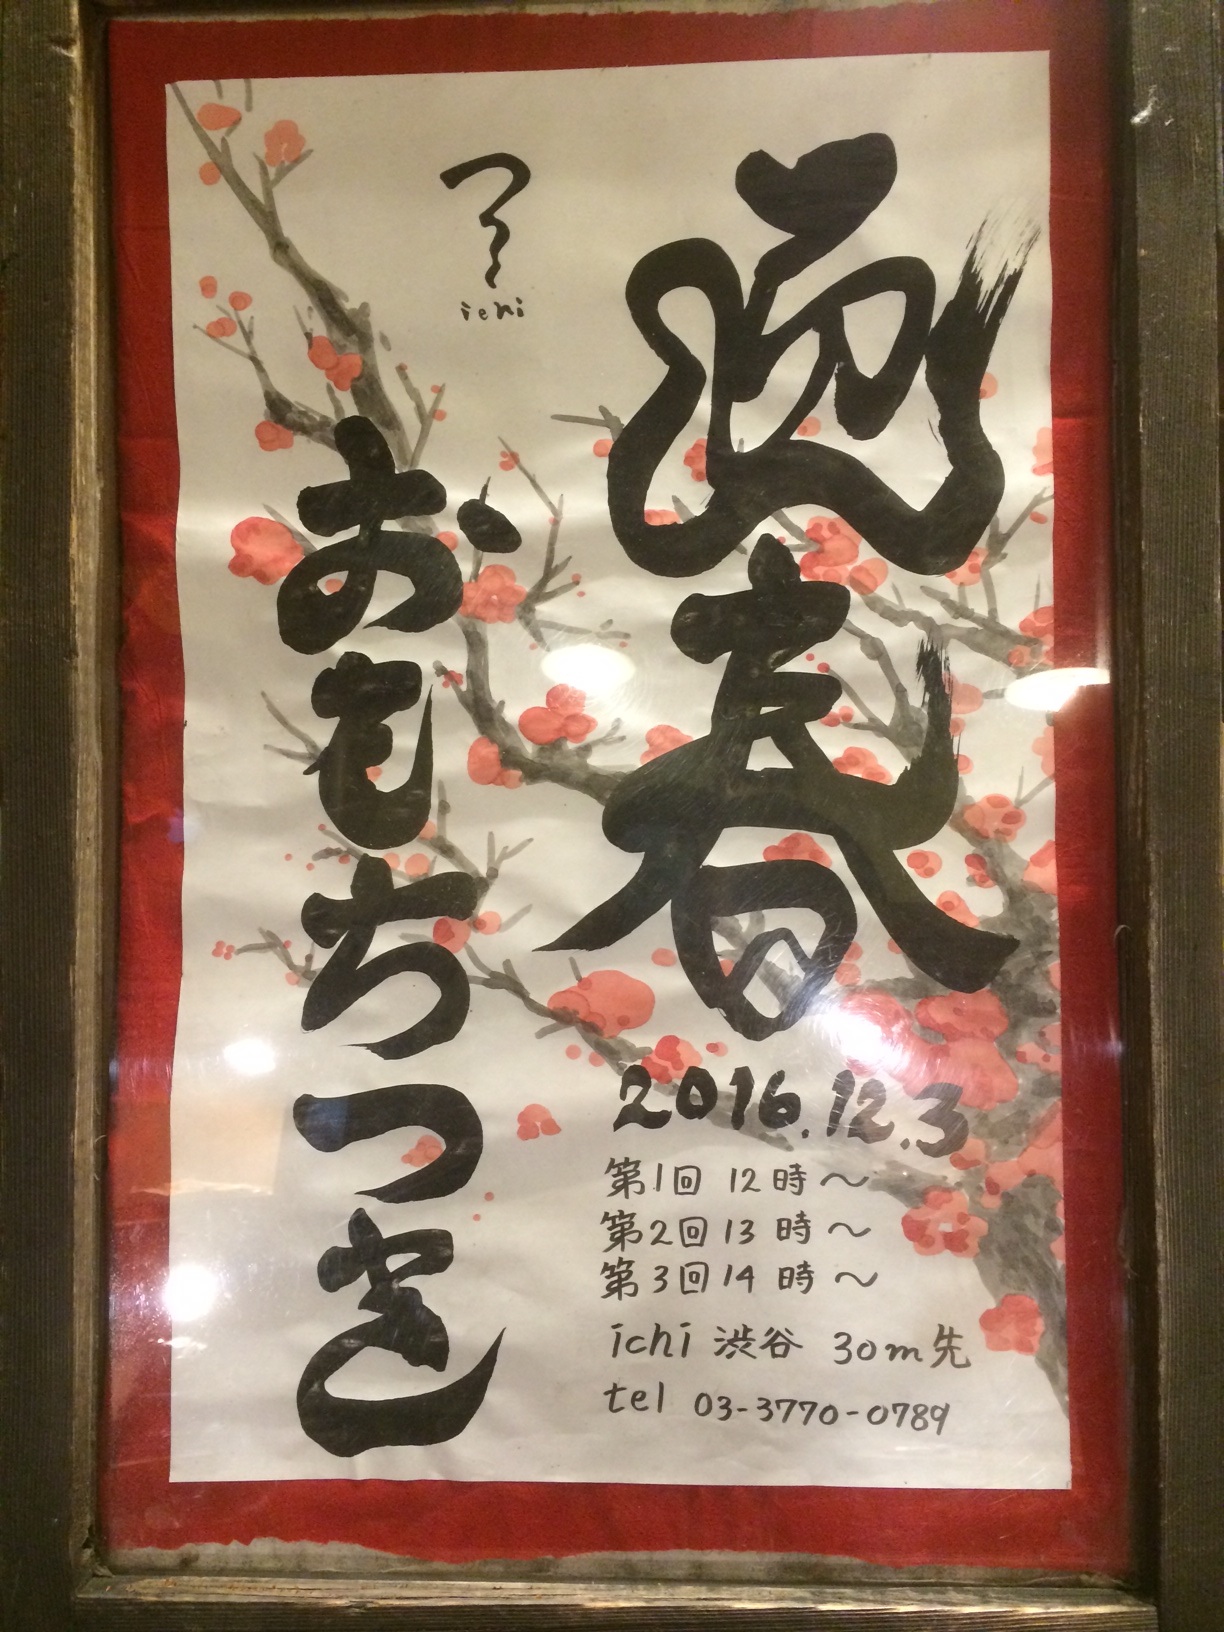 迎春
おもちつき
ichi
2016.12.3
第1回 12時～
第2回 13時～
第3回 14時～
ichi 渋谷 30m先
tel 03-3770-0789